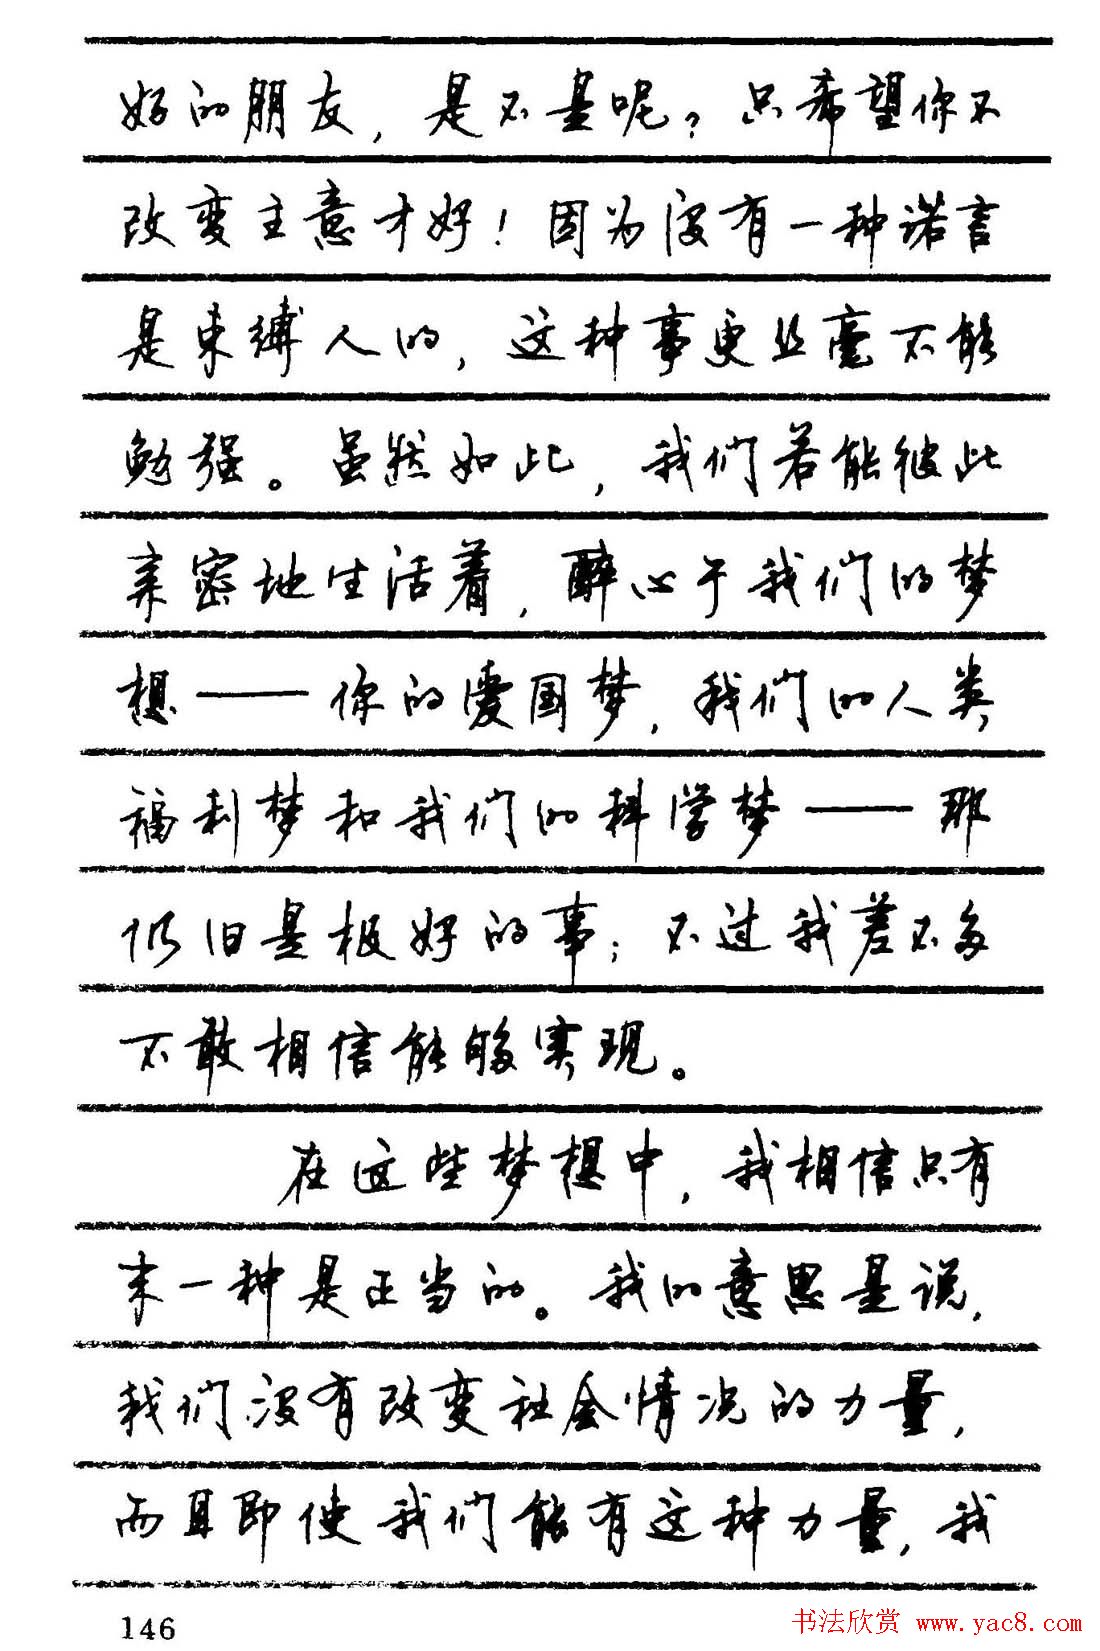 好的朋友，是不是呢？只希望你不
改变主意才好！因为没有一种诺言
是束缚人的，这种事更丝毫不能
勉强。虽然如此，我们若能彼此
亲密地生活着，醉心于我们的梦
想——你的爱国梦，我们的人类
福利梦和我们的科学梦——那
仍旧是极好的事；不过我差不多
不敢相信能够实现。
在这些梦想中，我相信只有
末一种是正当的。我的意思是说，
我们没有改变社会情况的力量，
而且即使我们能有这种力量，我
146
书法欣赏 www.yac8.com